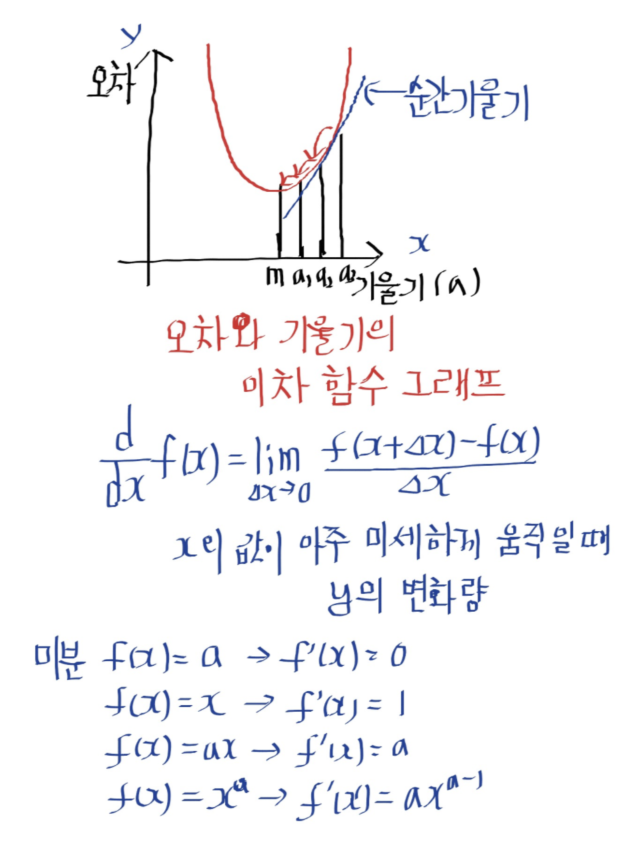 y
오차
순간기울기
x
m a₁ a₂ a₃ 기울기(a)
오차와 기울기의
이차 함수 그래프
d/dx f(x) = lim Δx→0 f(x+Δx)-f(x) / Δx
x의 값이 아주 미세하게 움직일 때
y의 변화량
미분 f(x) = a → f'(x) = 0
f(x) = x → f'(x) = 1
f(x) = ax → f'(x) = a
f(x) = xᵃ → f'(x) = axᵃ⁻¹